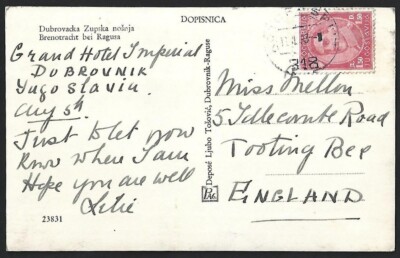 DOPISNICA
Dubrovacka Zupska nošnja
Brenotracht bei Ragusa
Grand Hotel Imperial
DUBROVNIK
Yugoslavia
Aug 5th
Just to let you
Know where I am
Hope you are well
23831
Deposé Ljubo Tošović, Dubrovnik-Raguse
1.50 JUGOSLAVIJA 1.50
318
Miss Mellon
5 Idlecombe Road
Tooting Bec
ENGLAND